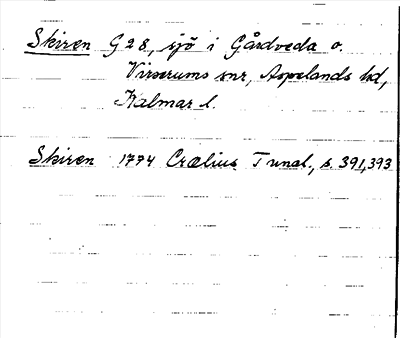 Skiren G 28, sjö i Gårdveda o.
Virserums snr, Aspelands hd,
Kalmar l.
Skiren 1774 Crælius Tunal, s. 391,393